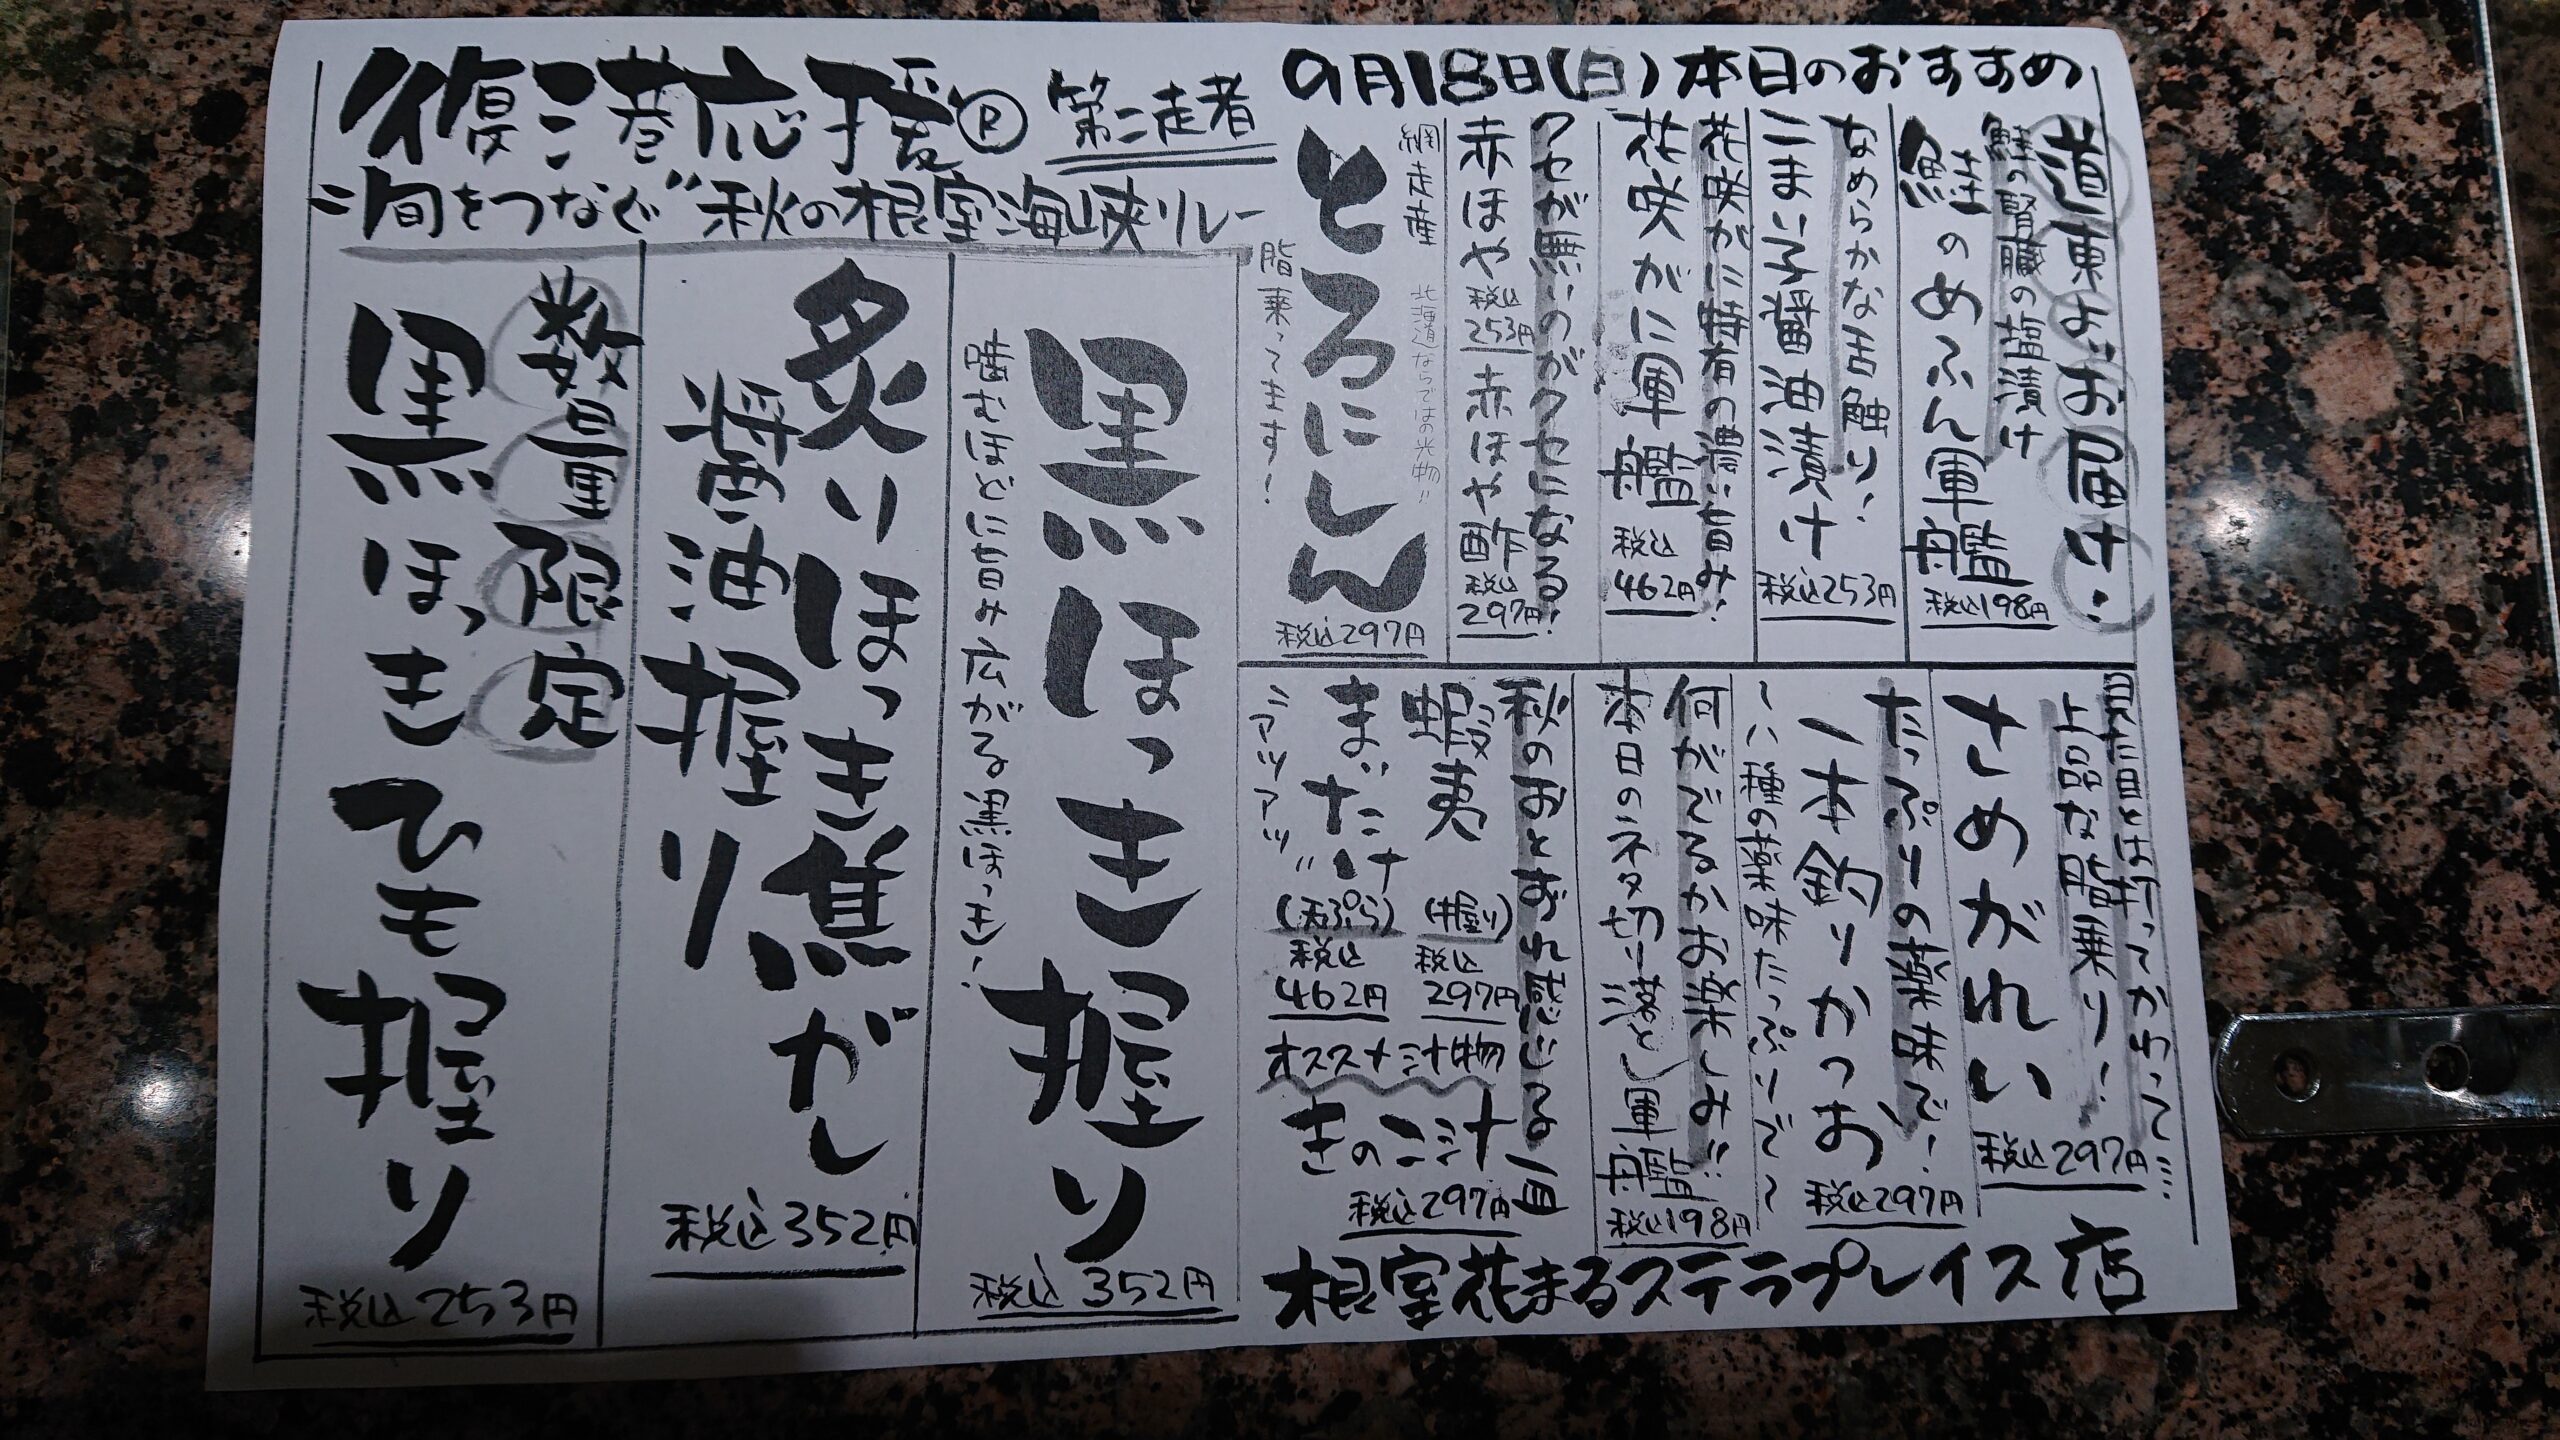 9月18日(日)本日のおすすめ
道東よりお届け!
鮭の腎臓の塩漬け
鮭のめふん軍艦
税込198円
なめらかな舌触り!
こまい子醤油漬け
税込253円
花咲がに特有の濃い旨み!
花咲がに軍艦
税込462円
クセが無いのがクセになる!
赤ほや 税込253円
赤ほや酢 税込297円
網走産 北海道ならではの光物!!
とろにしん
脂乗ってます!
税込297円
見た目とは打ってかわって…
上品な脂乗り!
さめがれい
税込297円
たっぷりの薬味で!
一本釣りかつお
税込297円
〜い種の薬味たっぷりで〜
何がでるかお楽しみ!!
本日のネタ切り落とし軍艦
税込198円
秋のおとずれ感じる一皿
蝦夷まいたけ
(握り)
税込
297円
(天ぷら)
税込
462円
アツアツ!!
オススメ汁物
きのこ汁
税込297円
根室花まるステラプレイス店
復港応援® 第二走者
旬をつなぐ"秋の根室海峡リレー
黒ほっき握り
税込352円
噛むほどに旨み広がる黒ほっき!
炙りほっき焦がし
醤油握り
税込352円
数量限定
黒ほっきひも握り
税込253円